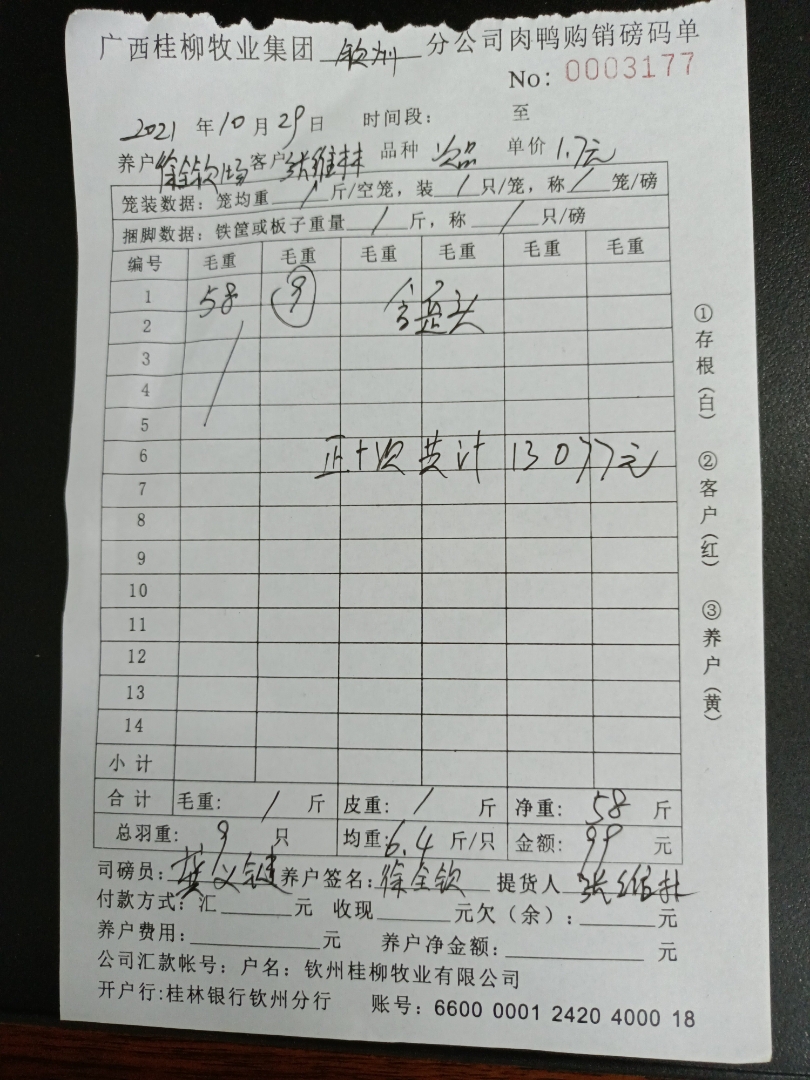 广西桂柳牧业集团 钦州 分公司肉鸭购销磅码单
No: 0003177
2021 年 10 月 29 日 时间段: 至
养户 徐全钦场 客户 张维林 品种 次品 单价 1.7元
笼装数据: 笼均重 / 斤/空笼, 装 / 只/笼, 称 / 笼/磅
捆脚数据: 铁筐或板子重量 / 斤, 称 / 只/磅
编号 毛重 毛重 毛重 毛重 毛重 毛重
1 58 9
2
3
4
5
6 正十次共计 13077元
7
8
9
10
11
12
13
14
小计
合计 毛重: / 斤 皮重: / 斤 净重: 58 斤
总羽重: 9 只 均重: 6.4 斤/只 金额: 99 元
司磅员: 养户签名: 徐全钦 提货人 张维林
付款方式: 汇 元 收现 元欠(余): 元
养户费用: 元 养户净金额: 元
公司汇款帐号: 户名: 钦州桂柳牧业有限公司
开户行:桂林银行钦州分行 账号: 6600 0001 2420 4000 18
①存根(白) ②客户(红) ③养户(黄)